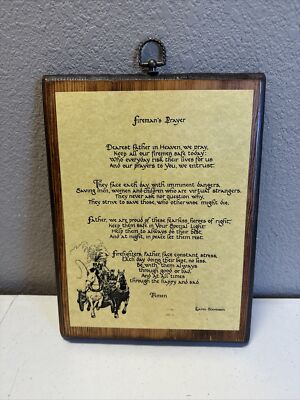 Fireman's Prayer
Dearest Father in Heaven, we pray,
Keep all our firemen safe today:
Who everyday risk their lives for us
And our prayers to You, we entrust.
They face each day with imminent dangers,
Saving men, women and children who are virtual strangers.
They never ask nor question why,
They strive to save those, who otherwise might die.
Father, we are proud of these fearless, heroes of right,
Keep them safe in Your Special Light
Help them to always do their best,
And at night, in peace let them rest.
Firefighters, Father, face constant stress,
Each day doing their best, no less.
Be with them always
through good or bad,
And at all times
through the happy and sad.
Amen